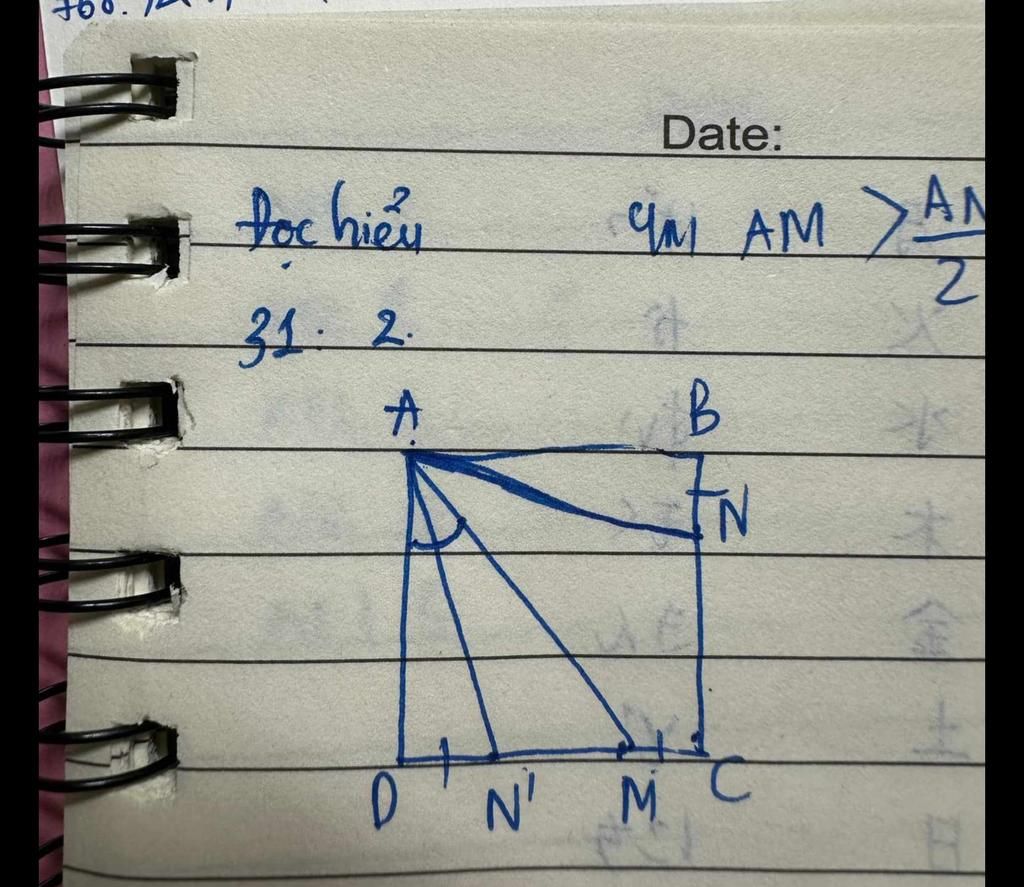 Date:
Đọc hiểu qm AM > AN/2
31. 2.
A B
N
D N' M C